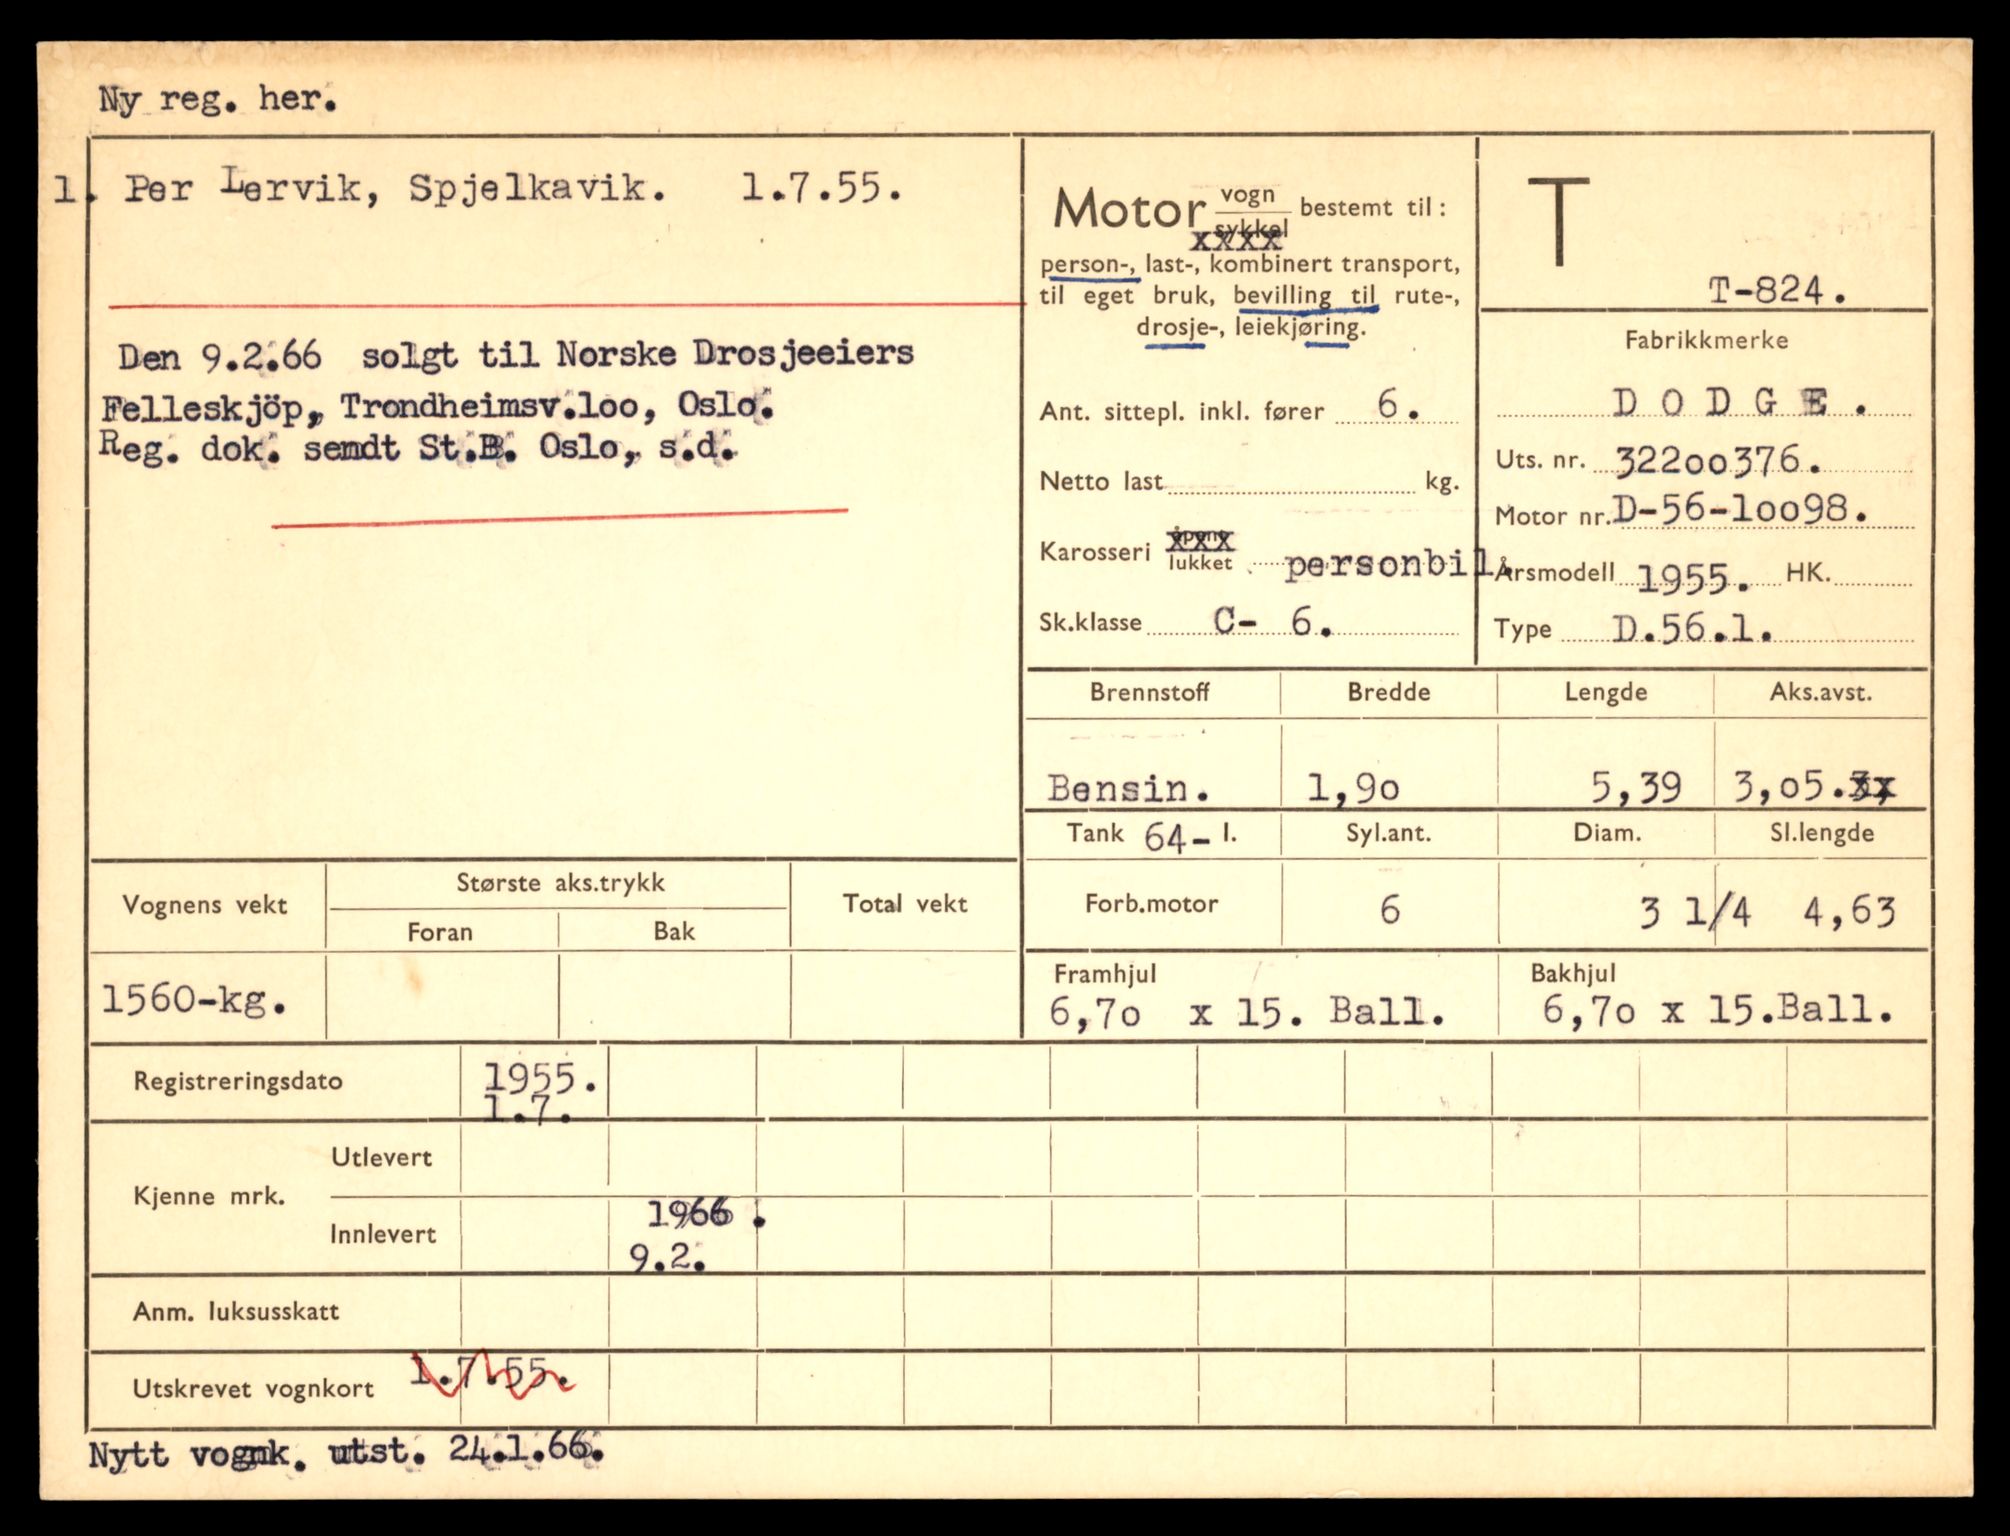 Ny reg. her.
1. Per Lervik, Spjelkavik. 1.7.55.
Den 9.2.66 solgt til Norske Drosjeeiers
Felleskjöp, Trondheimsv.loo, Oslo.
Reg. dok. semdt St.B. Oslo, s.d.
Motor vogn bestemt til:
sykkel
xxxx
person-, last-, kombinert transport,
til eget bruk, bevilling til rute-,
drosje-, leiekjøring.
Ant. sittepl. inkl. fører 6.
Netto last kg.
Karosseri åpent
xxx
lukket personbil.
Sk.klasse C- 6.
T
T-824.
Fabrikkmerke
DODGE.
Uts. nr. 322oo376.
Motor nr. D-56-1oo98.
Årsmodell 1955. HK.
Type D.56.1.
Brennstoff Bredde Lengde Aks.avst.
Bensin. 1,9o 5,39 3,o5.3x
Tank 64- l. Syl.ant. Diam. Sl.lengde
Forb.motor 6 3 1/4 4,63
Framhjul Bakhjul
6,7o x 15. Ball. 6,7o x 15.Ball.
Vognens vekt Største aks.trykk Total vekt
Foran Bak
1560-kg.
Registreringsdato 1955.
1.7.
Kjenne mrk. Utlevert
Innlevert 1966.
9.2.
Anm. luksusskatt
Utskrevet vognkort 1.7.55.
Nytt vognk. utst. 24.1.66.